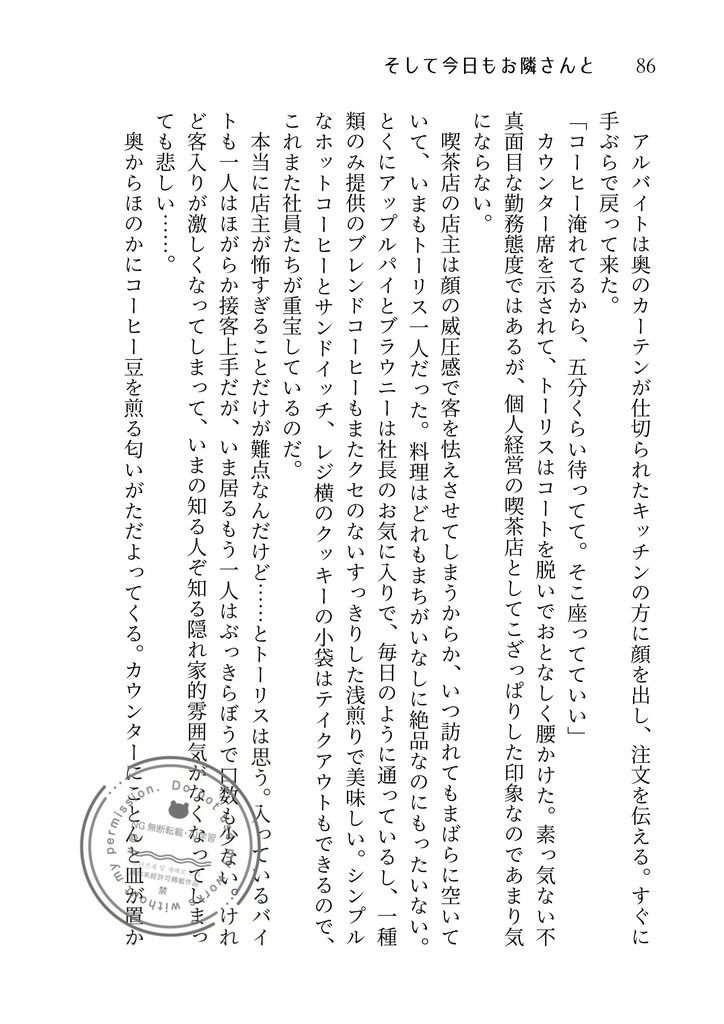 そして今日もお隣さんと
86
アルバイトは奥のカーテンが仕切られたキッチンの方に顔を出し、注文を伝える。すぐに
手ぶらで戻って来た。
「コーヒー淹れてるから、五分くらい待ってて。そこ座ってていい」
カウンター席を示されて、トーリスはコートを脱いでおとなしく腰かけた。素っ気ない不
真面目な勤務態度ではあるが、個人経営の喫茶店としてこざっぱりした印象なのであまり気
にならない。
喫茶店の店主は顔の威圧感で客を怯えさせてしまうからか、いつ訪れてもまばらに空いて
いて、いまもトーリス一人だった。料理はどれもまちがいなしに絶品なのにもったいない。
とくにアップルパイとブラウニーは社長のお気に入りで、毎日のように通っているし、一種
類のみ提供のブレンドコーヒーもまたクセのないすっきりした浅煎りで美味しい。シンプル
なホットコーヒーとサンドイッチ、レジ横のクッキーの小袋はテイクアウトもできるので、
これまた社員たちが重宝しているのだ。
本当に店主が怖すぎることだけが難点なんだけど……とトーリスは思う。入っているバイ
トも一人はほがらか接客上手だが、いま居るもう一人はぶっきらぼうで口数も少ない。けれ
ど客入りが激しくなってしまって、いまの知る人ぞ知る隠れ家的雰囲気がなくなってしまっ
ても悲しい……。
奥からほのかにコーヒー豆を煎る匂いがただよってくる。カウンターにことんと皿が置か
Do not
works without my permission.
NG 無断転載・
未經許可轉載作品
禁